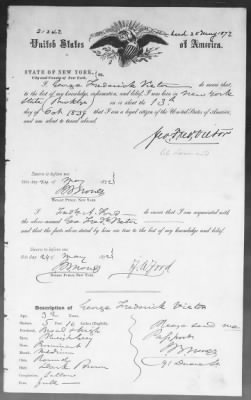 21242
Issued 25 May 1872
United States of America.
STATE OF NEW YORK, } ss.
City and County of New York,
I, George Frederick Vietor do swear that,
to the best of my knowledge, information, and belief, I was born in New York
State (Brooklyn) on or about the 13th
day of Oct 1839; that I am a loyal citizen of the United States of America,
and am about to travel abroad.
Geo. Fred. Vietor
Sworn to before me
this 24 day of May 1872
Notary Public, New York.
I, do swear that I am acquainted with
the above named Geo Fredk Vietor
and that the facts above stated by him are true to the best of my knowledge and belief.
Sworn to before me
this 24 day of May 1872
Notary Public, New York.
F. A. Ford
Description of George Frederick Vietor
Age, 32 Years
Stature, 5 " 10 Inches (English).
Forehead, Broad & high
Eyes,
Nose, Prominent
Mouth, Medium
Chin, Round
Hair, Dark Brown
Complexion, Sallow
Face, full
Please send me
Passport